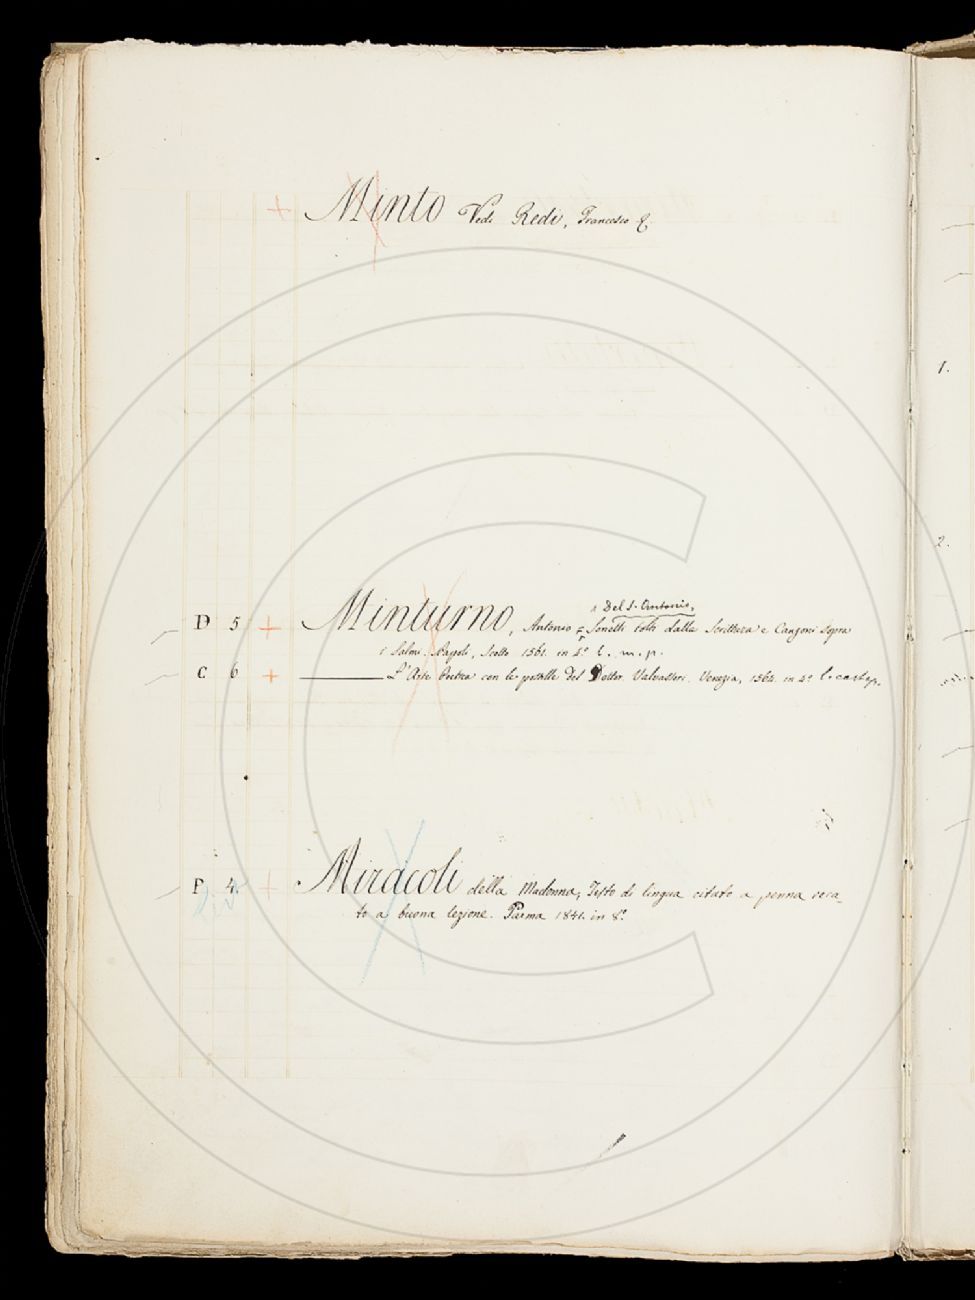 + Minto Vedi Redi, Francesco
^ Del S. Antonio,
D 5 + Minturno, Antonio Sonetti tolti dalla Scrittura e Canzoni sopra
i Salmi. Napoli, Scotto 1561. in 4.º l. m. p.
C 6 + ——— L'Arte Poetica con le postille del Dottor. Valvassori. Venezia, 1564. in 4.º l. cart. p.
P 4 + Miracoli della Madonna, Testo di lingua citato a penna reca-
to a buona lezione. Parma 1841. in 8.º
1.
2.